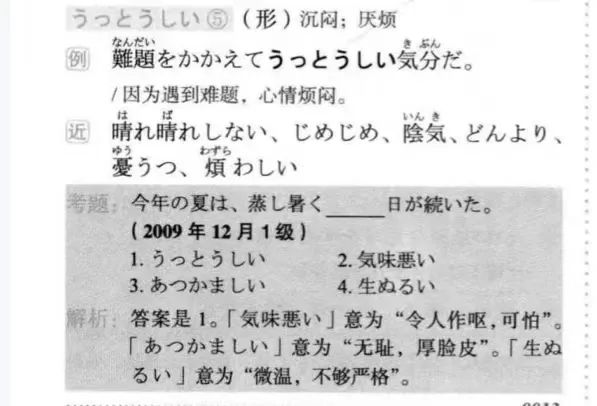 うっとうしい⑤（形）沉闷；厌烦
なんだい
き ぶん
例 難題をかかえてうっとうしい気分だ。
/因为遇到难题，心情烦闷。
は ば
いん き
近 晴れ晴れしない、じめじめ、陰気、どんより、
ゆう
わずら
憂うつ、煩わしい
考题：今年の夏は、蒸し暑く_____日が続いた。
（2009年12月1级）
1. うっとうしい 2. 気味悪い
3. あつかましい 4. 生ぬるい
解析：答案是1。「気味悪い」意为“令人作呕，可怕”。
「あつかましい」意为“无耻，厚脸皮”。「生ぬ
るい」意为“微温，不够严格”。